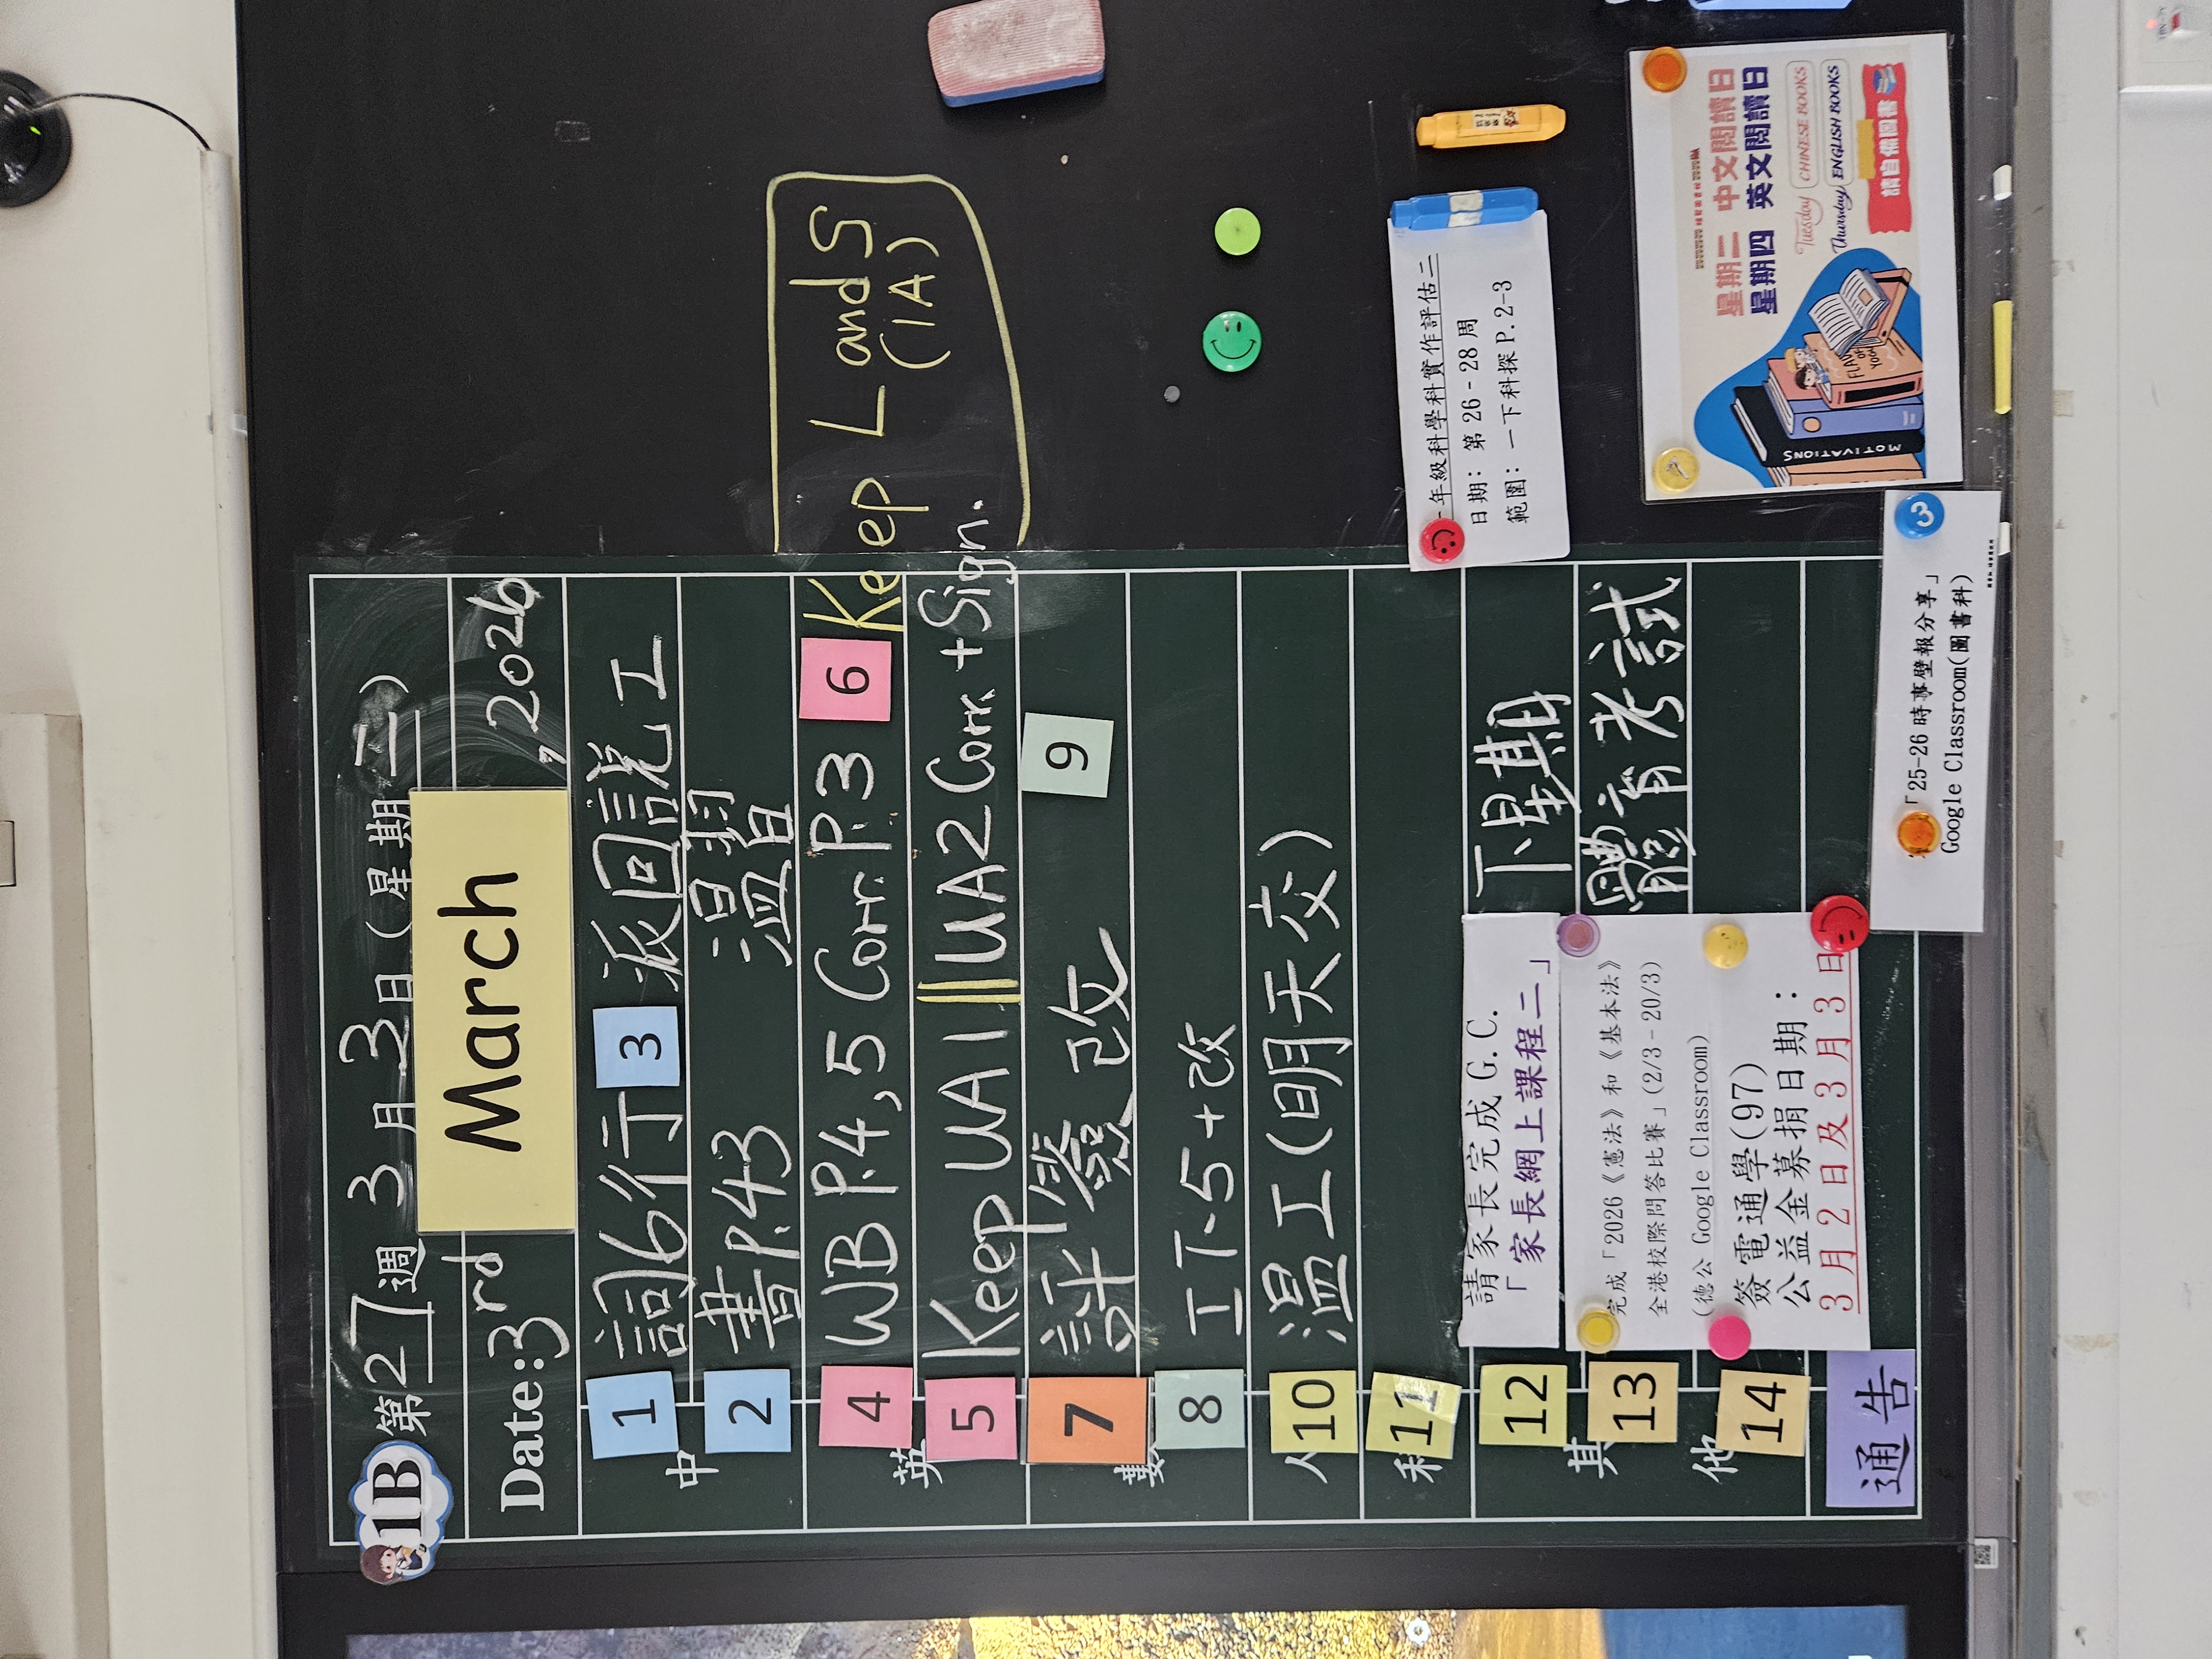 1B 第27週 3月3日(星期二)
Date: 3rd March, 2026
中
1 詞6行 3 派回說工
2 書P.43 溫習
英
4 WB P.4,5 Corr. P.3 6 Keep L and S
(1A)
5 Keep UA1 || UA2 Corr. + Sign.
數
7 計 簽 改 9
8 工下-5+改
人
10 溫工(明天交)
科
11
其他
12 請家長完成 G.C.
「家長網上課程二」
下星期
體育考試
13 完成「2026《憲法》和《基本法》
全港校際問答比賽」(2/3-20/3)
(德公 Google Classroom)
14 簽電通學(97)
公益金募捐日期:
3月2日及3月3日
通告
年級科學科實作評估二
日期: 第 26-28 周
範圍: 一下科探 P.2-3
星期二 中文閱讀日
星期四 英文閱讀日
Tuesday CHINESE BOOKS
Thursday ENGLISH BOOKS
請自備圖書
MOTIVATIONS
3
「25-26 時事壁報分享」
Google Classroom(圖書科)